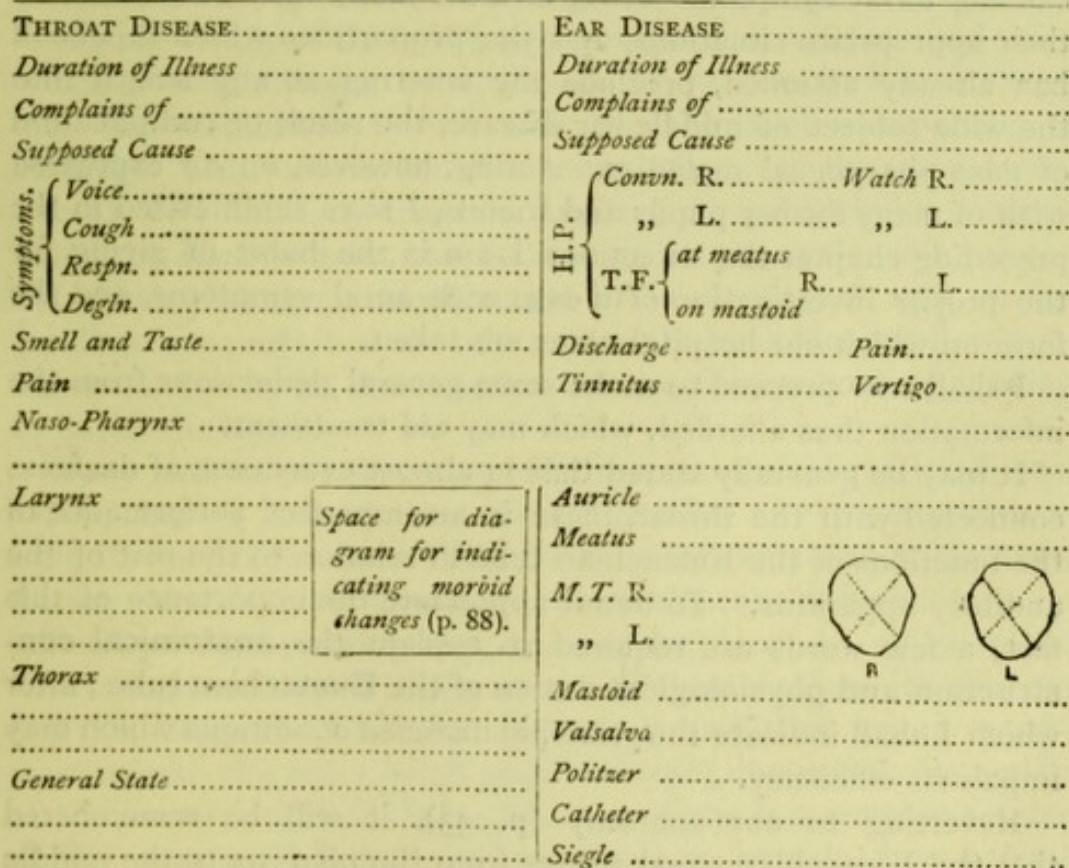 THROAT DISEASE..............................
Duration of Illness ..............................
Complains of ..............................
Supposed Cause ..............................
Symptoms.
Voice..............................
Cough ..............................
Respn. ..............................
Degln. ..............................
Smell and Taste..............................
Pain ..............................
EAR DISEASE ..............................
Duration of Illness ..............................
Complains of ..............................
Supposed Cause ..............................
H.P.
Convn. R. ............ Watch R. ............
„ L. ............ „ L. ............
T.F. at meatus R............ L............
on mastoid
Discharge ............ Pain............
Tinnitus ............ Vertigo............
Naso-Pharynx ..............................
Larynx ..............................
Space for dia-
gram for indi-
cating morbid
changes (p. 88).
Thorax ..............................
General State..............................
Auricle ..............................
Meatus ..............................
M. T. R. ..............................
„ L. ..............................
R L
Mastoid ..............................
Valsalva ..............................
Politzer ..............................
Catheter ..............................
Siegle ..............................